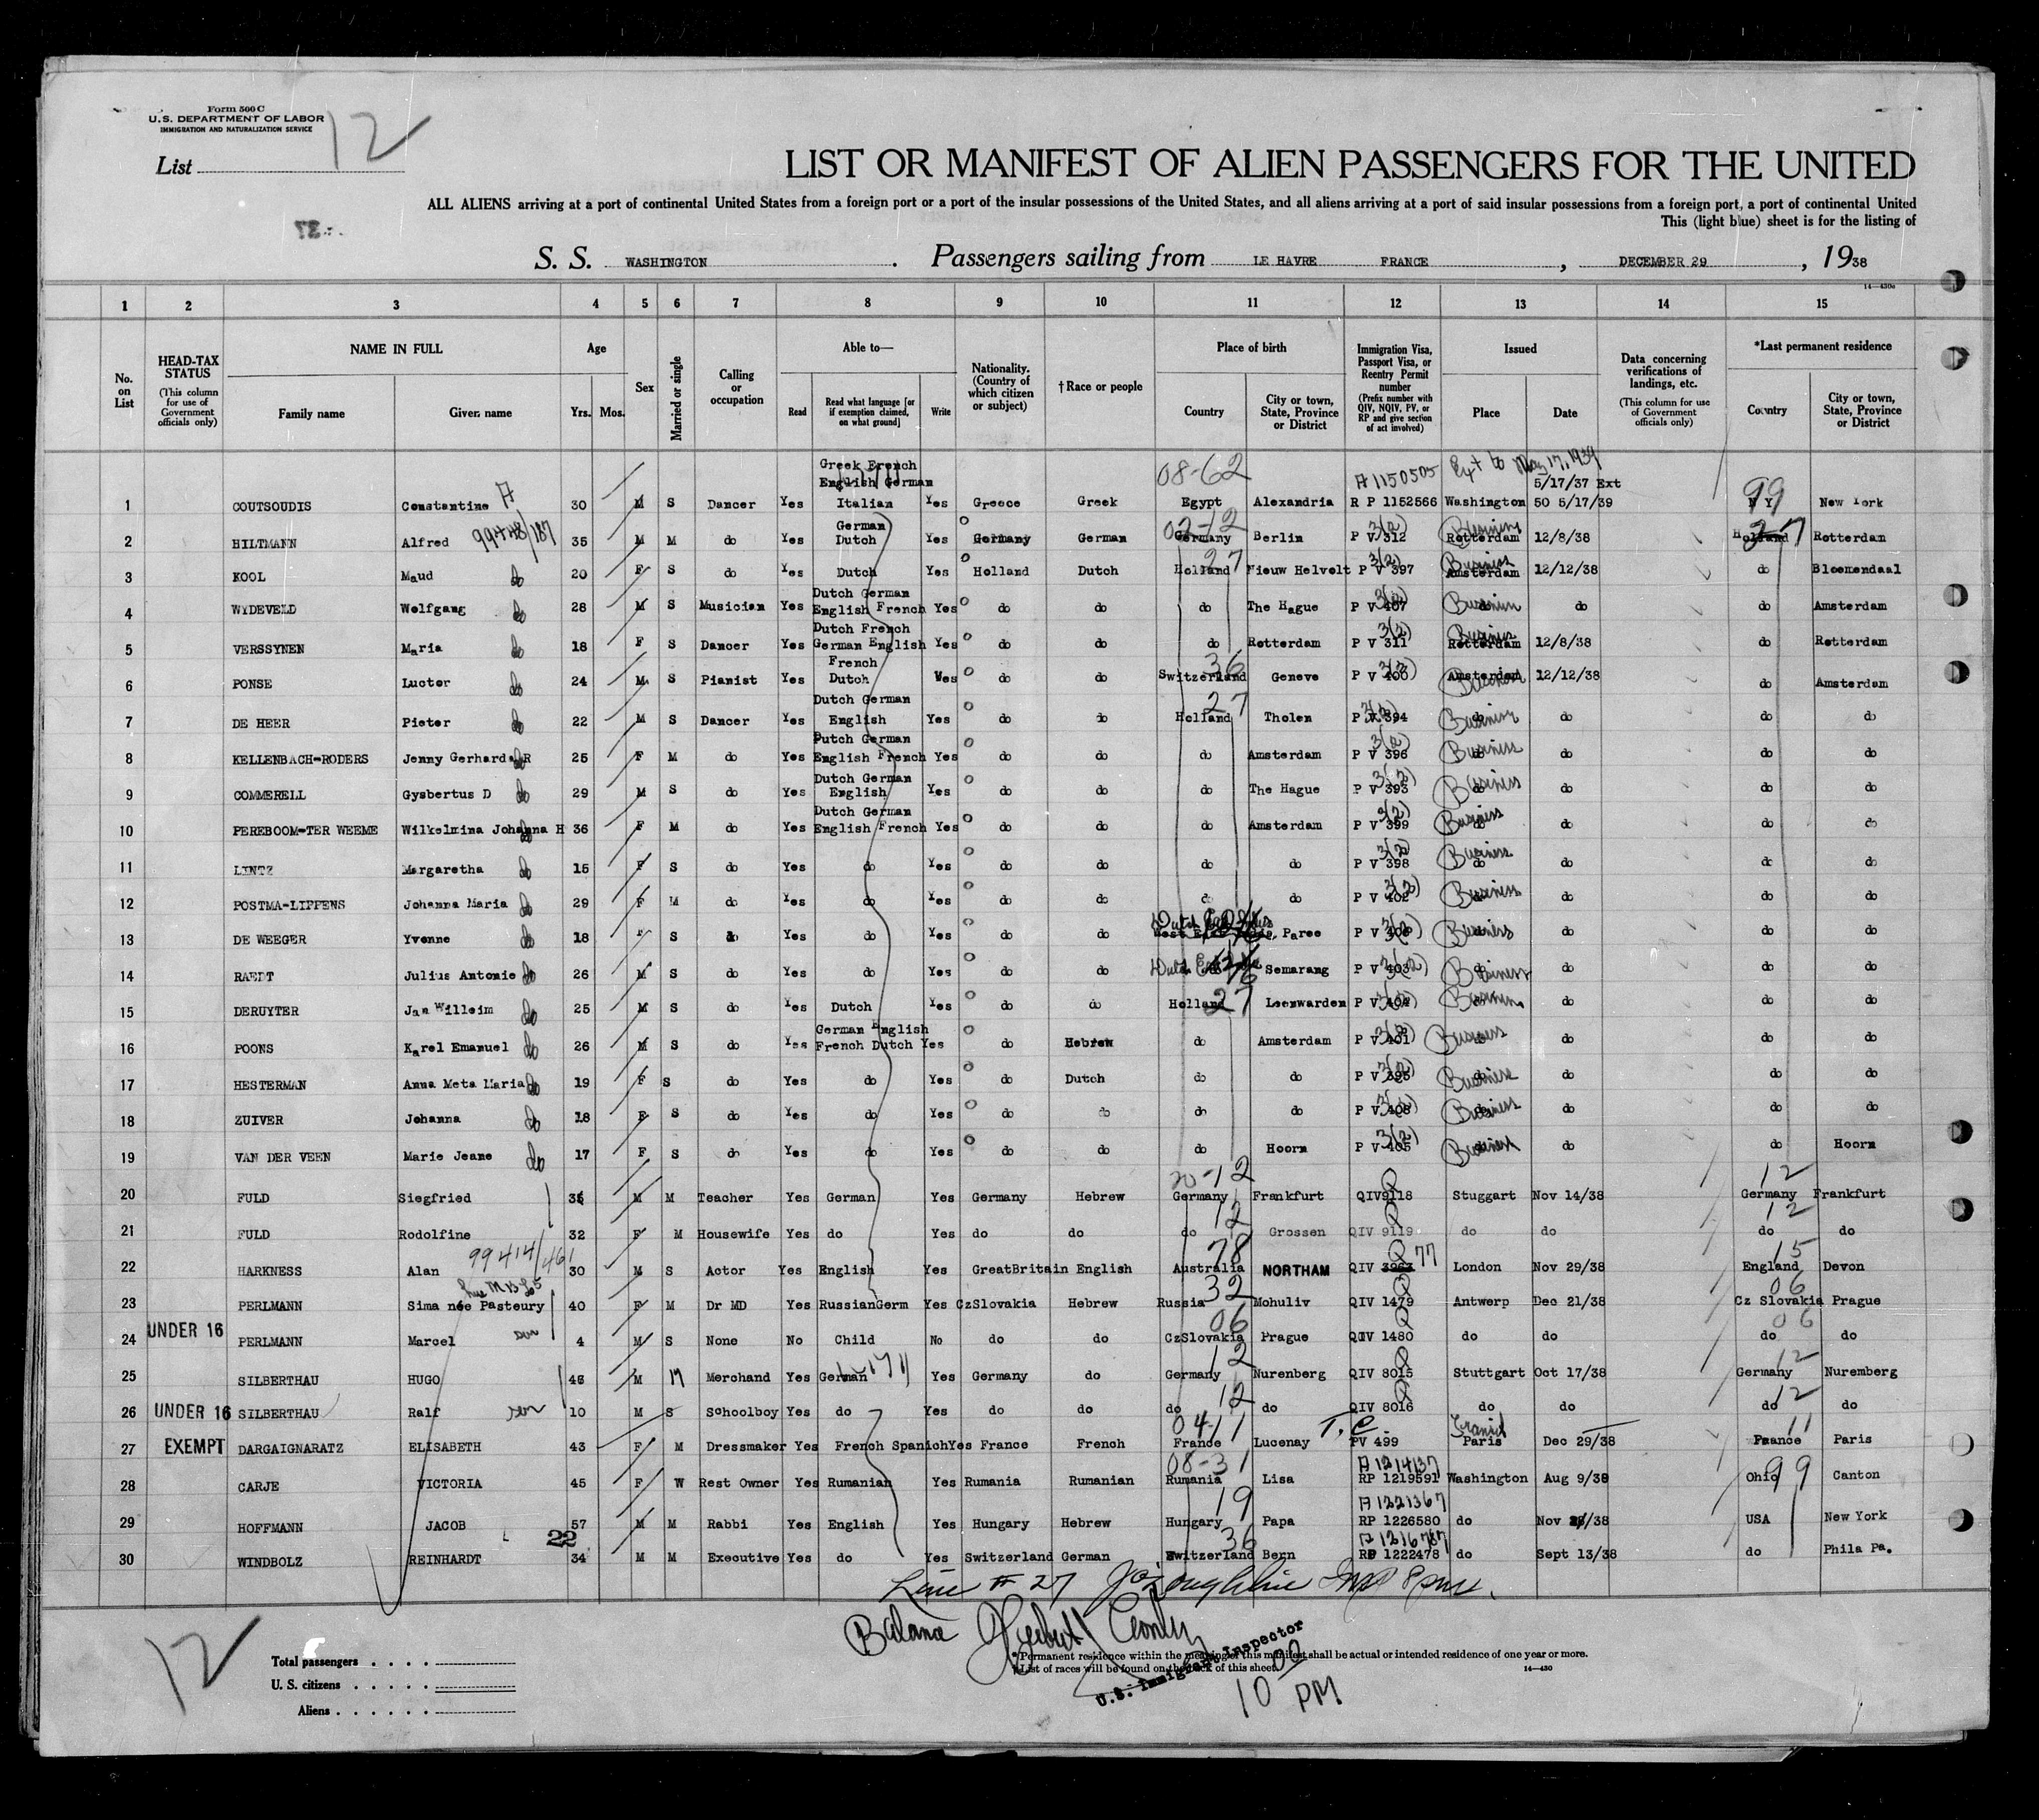 Form 500 C
U.S. DEPARTMENT OF LABOR
IMMIGRATION AND NATURALIZATION SERVICE
List 12
LIST OR MANIFEST OF ALIEN PASSENGERS FOR THE UNITED
ALL ALIENS arriving at a port of continental United States from a foreign port or a port of the insular possessions of the United States, and all aliens arriving at a port of said insular possessions from a foreign port, a port of continental United
This (light blue) sheet is for the listing of
S. S. WASHINGTON . Passengers sailing from LE HAVRE FRANCE , DECEMBER 29 , 1938
14—430a
1 2 3 4 5 6 7 8 9 10 11 12 13 14 15
No. on List
HEAD-TAX STATUS (This column for use of Government officials only)
NAME IN FULL Family name Given name
Age Yrs. Mos.
Sex
Married or single
Calling or occupation
Able to— Read Read what language [or if exemption claimed, on what ground] Write
Nationality. (Country of which citizen or subject)
†Race or people
Place of birth Country City or town, State, Province or District
Immigration Visa, Passport Visa, or Reentry Permit number (Prefix number with QIV, NQIV, PV, or RP and give section of act involved)
Issued Place Date
Data concerning verifications of landings, etc. (This column for use of Government officials only)
*Last permanent residence Country City or town, State, Province or District
Greek French 08-62 A1150505 Ext to May 17, 1939
English German 5/17/37 Ext 99
1 COUTSOUDIS Constantine A 30 M S Dancer Yes Italian Yes Greece Greek Egypt Alexandria R P 1152566 Washington 50 5/17/39 N Y New York
99448/187 German 02-12 3(2) Business 27
2 HILTMANN Alfred 35 M M do Yes Dutch Yes Germany German Germany Berlin P V 312 Rotterdam 12/8/38 Holland Rotterdam
27 3(2) Business
3 KOOL Maud do 20 F S do Yes Dutch Yes Holland Dutch Holland Nieuw Helvolt P V 397 Amsterdam 12/12/38 do Bloemendaal
Dutch German 3(2) Business
4 WYDEVELD Wolfgang do 28 M S Musician Yes English French Yes do do do The Hague P V 407 do do do Amsterdam
Dutch French 3(2) Business
5 VERSSYNEN Maria do 18 F S Dancer Yes German English Yes do do do Rotterdam P V 311 Rotterdam 12/8/38 do Rotterdam
French 36 3(2) Business
6 PONSE Luctor do 24 M S Pianist Yes Dutch Yes do do Switzerland Geneve P V 400 Amsterdam 12/12/38 do Amsterdam
Dutch German 27 3(2) Business
7 DE HEER Pieter do 22 M S Dancer Yes English Yes do do Holland Tholen P V 394 do do do do
Dutch German 3(2) Business
8 KELLENBACH-RODERS Jenny Gerharda R do 25 F M do Yes English French Yes do do do Amsterdam P V 396 do do do do
Dutch German 3(2) Business
9 COMMERELL Gysbertus D do 29 M S do Yes English Yes do do do The Hague P V 393 do do do do
Dutch German 3(2) Business
10 PEREBOOM-TER WEEME Wilkelmina Johanna H do 36 F M do Yes English French Yes do do do Amsterdam P V 399 do do do do
3(2) Business
11 LINTZ Margaretha do 15 F S do Yes do Yes do do do do P V 398 do do do do
3(2) Business
12 POSTMA-LIPPENS Johanna Maria do 29 F M do Yes do Yes do do do do P V 402 do do do do
Dutch East Indies 3(2) Business
13 DE WEEGER Yvonne do 18 F S do Yes do Yes do do Paree P V 406 do do do do
Dutch East 76 3(2) Business
14 RAEDT Julius Antonie do 26 M S do Yes do Yes do do Semarang P V 403 do do do do
27 3(2) Business
15 DERUYTER Jan Willeim do 25 M S do Yes Dutch Yes do do Holland Leeuwarden P V 404 do do do do
German English 3(2) Business
16 POONS Karel Emanuel do 26 M S do Yes French Dutch Yes do Hebrew do Amsterdam P V 401 do do do do
3(2) Business
17 HESTERMAN Anna Meta Maria do 19 F S do Yes do Yes do Dutch do do P V 395 do do do do
3(2) Business
18 ZUIVER Johanna do 18 F S do Yes do Yes do do do do P V 408 do do do do
3(2) Business
19 VAN DER VEEN Marie Jeane do 17 F S do Yes do Yes do do do Hoorn P V 405 do do do Hoorn
20-12 Q 12
20 FULD Siegfried M M Teacher Yes German Yes Germany Hebrew Germany Frankfurt QIV9118 Stuggart Nov 14/38 Germany Frankfurt
12 Q 12
21 FULD Rodolfine 32 F M Housewife Yes do Yes do do do Grossen QIV 9119 do do do do
99414/461 78 Q 77 15
22 HARKNESS Alan 30 M S Actor Yes English Yes GreatBritain English Australia NORTHAM QIV London Nov 29/38 England Devon
32 Q 06
23 PERLMANN Sima née Pasteury 40 F M Dr MD Yes RussianGerm Yes CzSlovakia Hebrew Russia Mohuliv QIV 1479 Antwerp Dec 21/38 Cz Slovakia Prague
UNDER 16 son 06 Q 06
24 PERLMANN Marcel 4 M S None No Child No do do CzSlovakia Prague QIV 1480 do do do do
12 Q 12
25 SILBERTHAU HUGO M M Merchand Yes German Yes Germany do Germany Nurenberg QIV 8015 Stuttgart Oct 17/38 Germany Nuremberg
12 Q 12
26 UNDER 16 SILBERTHAU Ralf son 10 M S Schoolboy Yes do Yes do do do do QIV 8016 do do do do
04-11 T.C. Transit 11
27 EXEMPT DARGAIGNARATZ ELISABETH 43 F M Dressmaker Yes French Spanich Yes France French France Lucenay PV 499 Paris Dec 29/38 France Paris
08-31 A1214137 99
28 CARJE VICTORIA 45 F W Rest Owner Yes Rumanian Yes Rumania Rumanian Rumania Lisa RP 1219591 Washington Aug 9/38 Ohio Canton
19 A1221367
29 HOFFMANN JACOB 57 M M Rabbi Yes English Yes Hungary Hebrew Hungary Papa RP 1226580 do Nov /38 USA New York
22 36 A1216787
30 WINDBOLZ REINHARDT 34 M M Executive Yes do Yes Switzerland German Switzerland Bern RP 1222478 do Sept 13/38 do Phila Pa.
Line # 27
Balance
U.S. Immigrant Inspector
12
Total passengers
U. S. citizens
Aliens
*Permanent residence within the meaning of this manifest shall be actual or intended residence of one year or more.
†List of races will be found on the back of this sheet.
14—430
10 00 PM